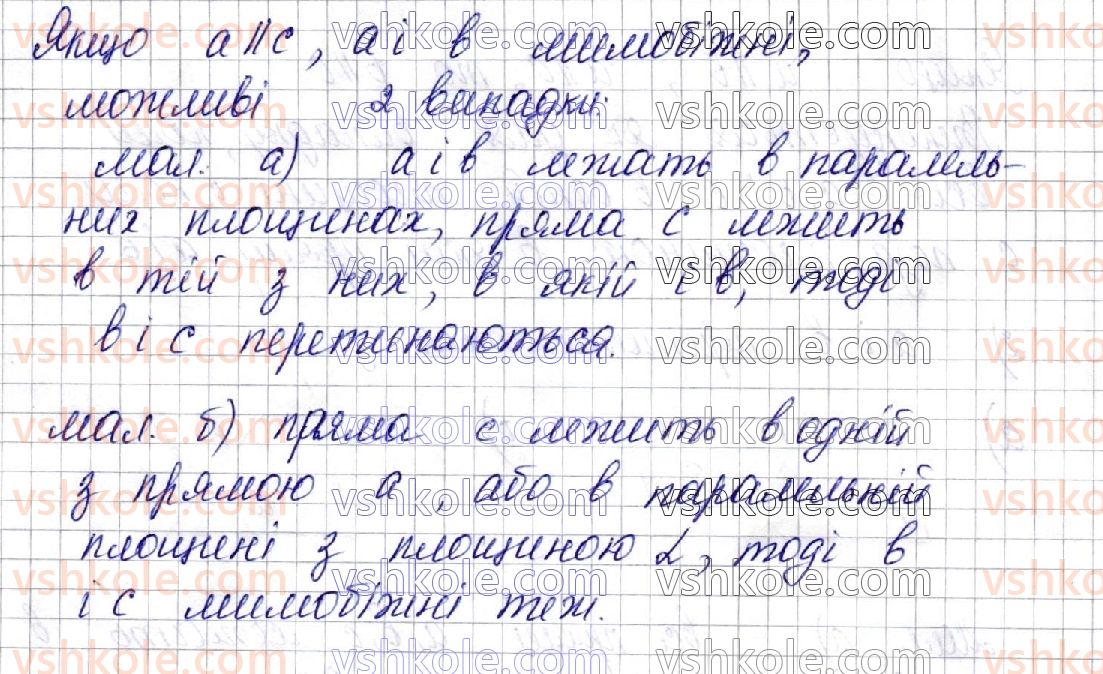 Якщо a || c, a і в мимобіжні,
можливі 2 випадки:
мал. а) a і в лежать в паралель-
них площинах, пряма c лежить
в тій з них, в якій і в, тоді
в і c перетинаються.
мал. б) пряма c лежить в одній
з прямою a, або в паралельній
площині з площиною α, тоді в
і c мимобіжні теж.
vshkole.com